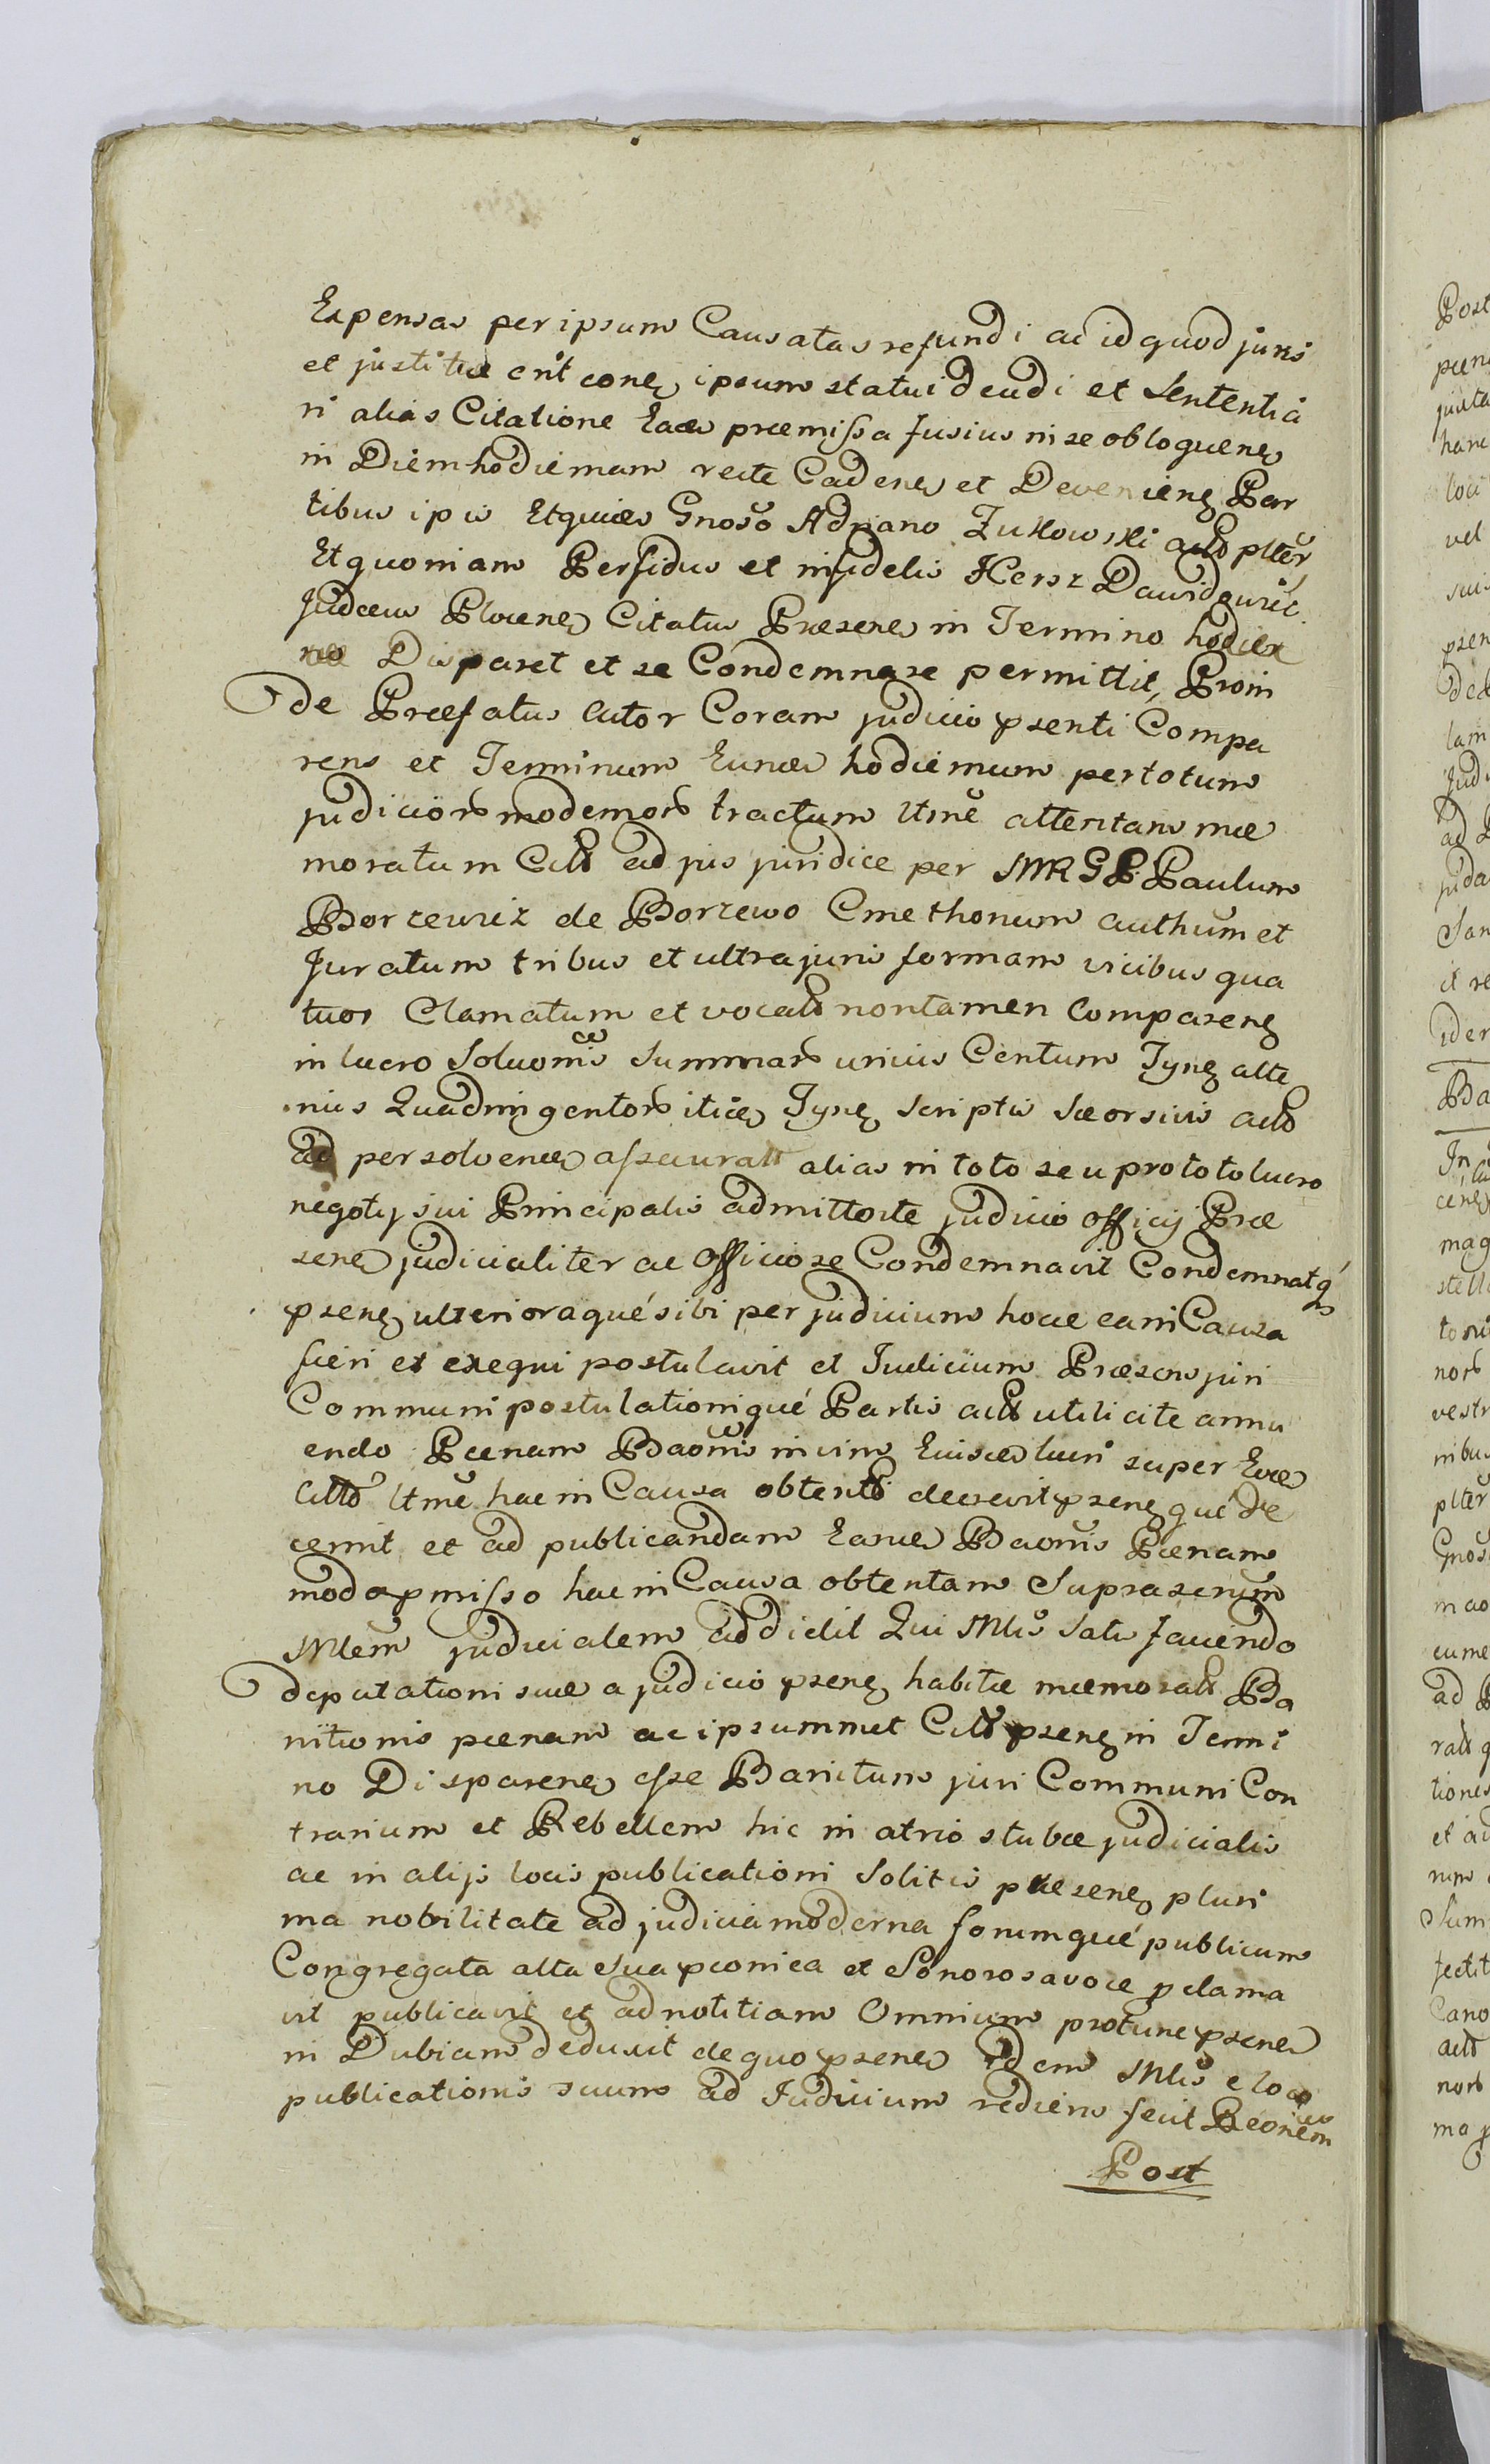 Expensas per ipsum Causatas refundi ac id quod juris
et justitiæ erit conẹ ipsum statui dendi et Sententia
ri alias Citatione Eadẹ præmissa fusius in se obloquenẹ
in Diem hodiernam recte Cadenẹ et Devenienẹ Par
tibus ipsis Etquidẹ Gnoso Adriano Zukowski actō plter
Et quoniam Perfidus et infidelis Hersz Dawidowicz
Judæus Plocenẹ Citatus Præsenẹ in Termino hodier
no Disparet et se Condemnare permittit, Proin
de Præfatus Actor Coram judicio psenti Compa
rens et Terminum Eundẹ hodiernum per totum
judiciorō modernorō tractum ltme attentans me
moratum Cittō ad jus juridice per MRGP Paulum
Borzewicz de Borzewo Cmethonum authum et
Juratum tribus et ultra juris formam vicibus qua
tuor Clamatum et vocatō non tamen Comparenẹ
in lucro Soluonis Summarō unius Centum Tynẹ alte
rius Quadringentorō itidẹ Tynẹ Scriptis Seorsivis actō
ad persolvendẹ assecuratt alias in toto seu pro toto lucro
negotij sui Principalis admittente judicio officij Præ
senẹ judicialiter ac Officiose Condemnavit Condemnatq́
psenẹ ulterioraqué sibi per judicium hocce ea in Causa
fieri et exequi postulavit et Iudicium Præsens juri
Communi postulationiqué Partis actō utili cite annu
endo Pœnam Baonis in vim Eiusdẹ lucri super Eodẹ
Cittō ltme hac in Causa obtentō decrevit psenẹqué de
cernit et ad publicandam Eandẹ Baonis Pœnam
modo pmisso hac in Causa obtentam Supra scrūm
Mlem judicialem addidit Qui Mlis Satis faciendo
deputationi suæ a judicio psenẹ habitæ memoratō Ba
nitionis pœnam ac ipsummet Cittō psenẹ in Termi
no Disparenẹ esse Banitum juri Communi Con
trarium et Rebellem hic in atrio stubæ judicialis
ac in alijs locis publicationi Solitis præsenẹ pluri
ma nobilitate ad judicia moderna forumqué publicum
Congregata alta sua pconica et Sonorosa voce pclama
vit publicavit et ad notitiam Omnium pro tunc psenẹ
in Dubiam deduxit de quo psenẹ idem Mlis e loco
publicationis suum ad Iudicium rediens fecit Reonem
Post